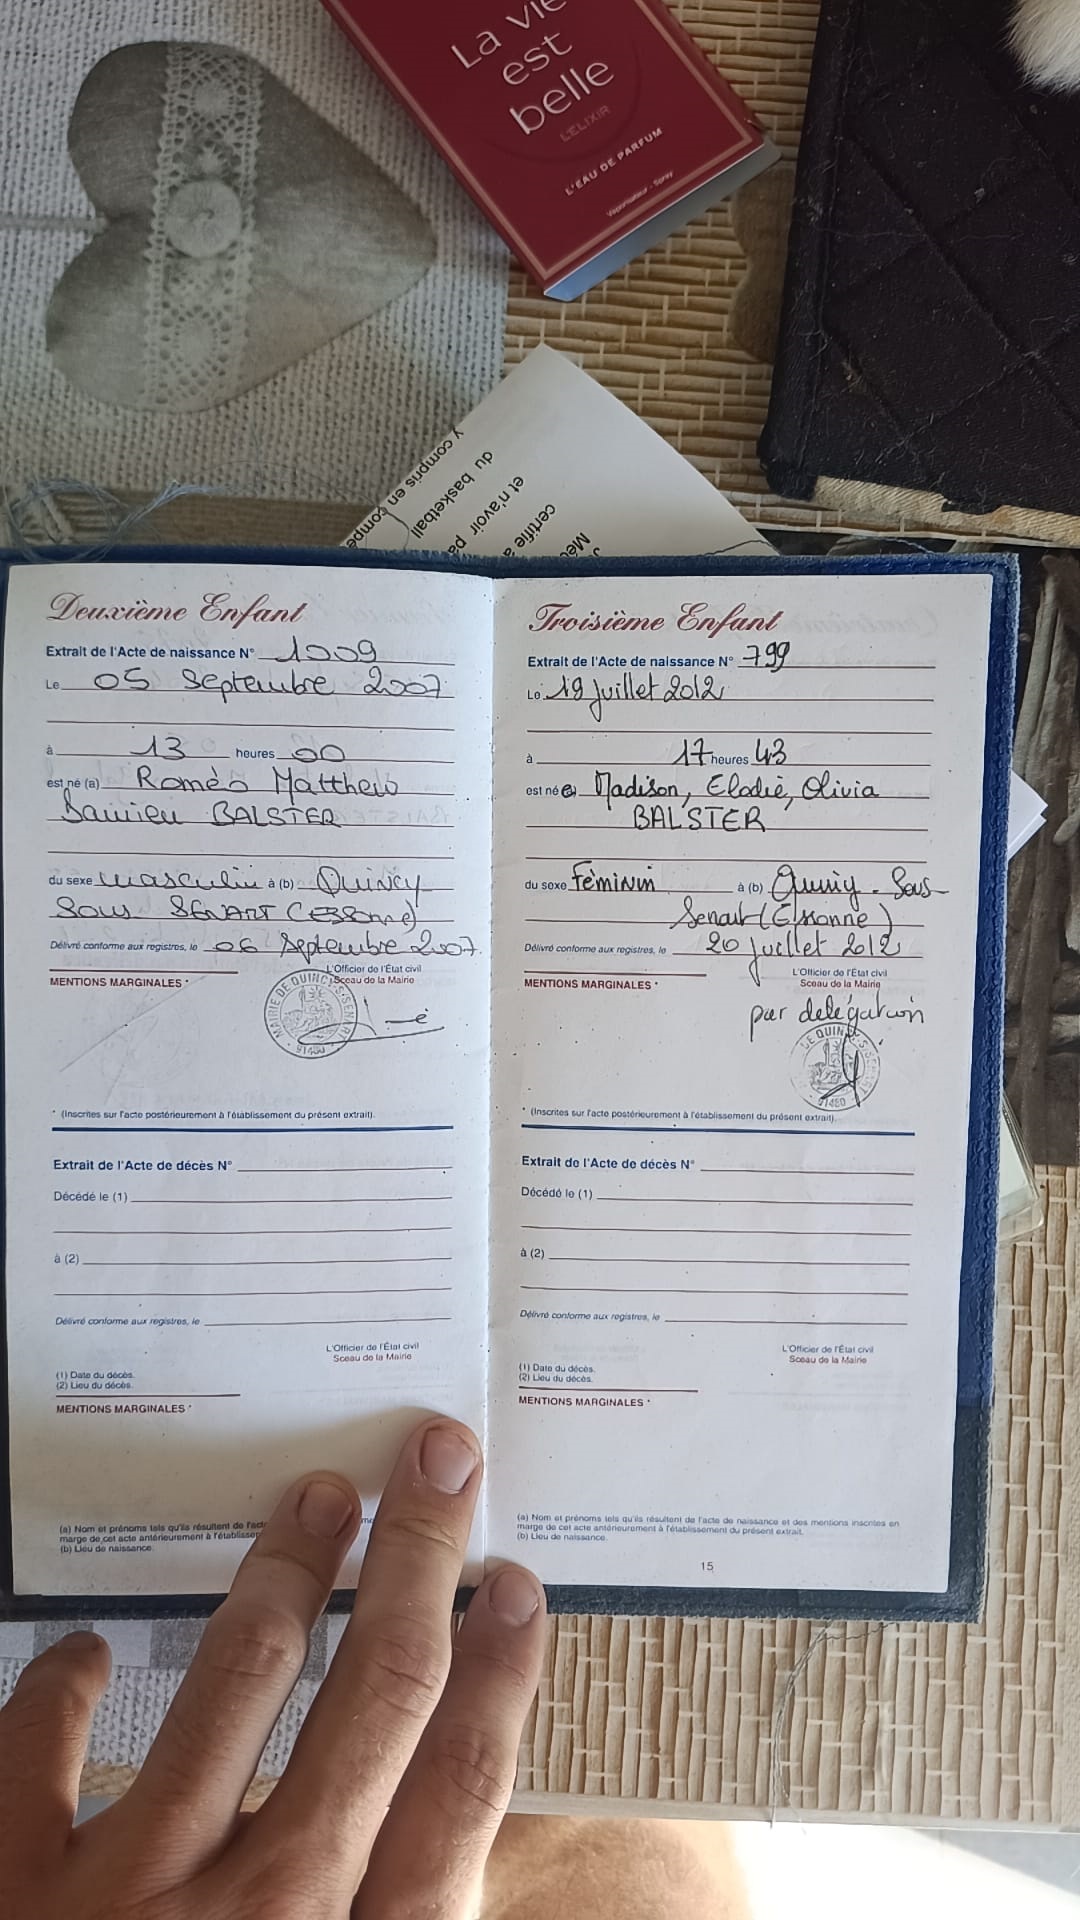 La vie
est
belle
L'ELIXIR
L'EAU DE PARFUM
Vaporisateur - Spray
y compris en compé
du basketball
et n'avoir pa
certifie
Deuxième Enfant
Extrait de l'Acte de naissance N° 1009
Le 05 Septembre 2007
à 13 heures 00
est né (a) Roméo Matthew
Damien BALSTER
du sexe masculin à (b) QUINCY
SOUS SENART (ESSonne)
Délivré conforme aux registres, le 06 Septembre 2007
L'Officier de l'État civil
Sceau de la Mairie
MENTIONS MARGINALES *
MAIRIE DE QUINCY S/SENART
91480
* (Inscrites sur l'acte postérieurement à l'établissement du présent extrait).
Extrait de l'Acte de décès N°
Décédé le (1)
à (2)
Délivré conforme aux registres, le
L'Officier de l'État civil
Sceau de la Mairie
(1) Date du décès.
(2) Lieu du décès.
MENTIONS MARGINALES *
(a) Nom et prénoms tels qu'ils résultent de l'acte
marge de cet acte antérieurement à l'établissem
(b) Lieu de naissance.
Troisième Enfant
Extrait de l'Acte de naissance N° 799
Le 19 juillet 2012
à 17 heures 43
est née Madison, Elodie, Olivia
BALSTER
du sexe Féminin à (b) Quincy-Sous-
Senart (Essonne)
Délivré conforme aux registres, le 20 juillet 2012
L'Officier de l'État civil
Sceau de la Mairie
MENTIONS MARGINALES *
par délégation
91480
* (Inscrites sur l'acte postérieurement à l'établissement du présent extrait).
Extrait de l'Acte de décès N°
Décédé le (1)
à (2)
Délivré conforme aux registres, le
L'Officier de l'État civil
Sceau de la Mairie
(1) Date du décès.
(2) Lieu du décès.
MENTIONS MARGINALES *
(a) Nom et prénoms tels qu'ils résultent de l'acte de naissance et des mentions inscrites en
marge de cet acte antérieurement à l'établissement du présent extrait.
(b) Lieu de naissance.
15